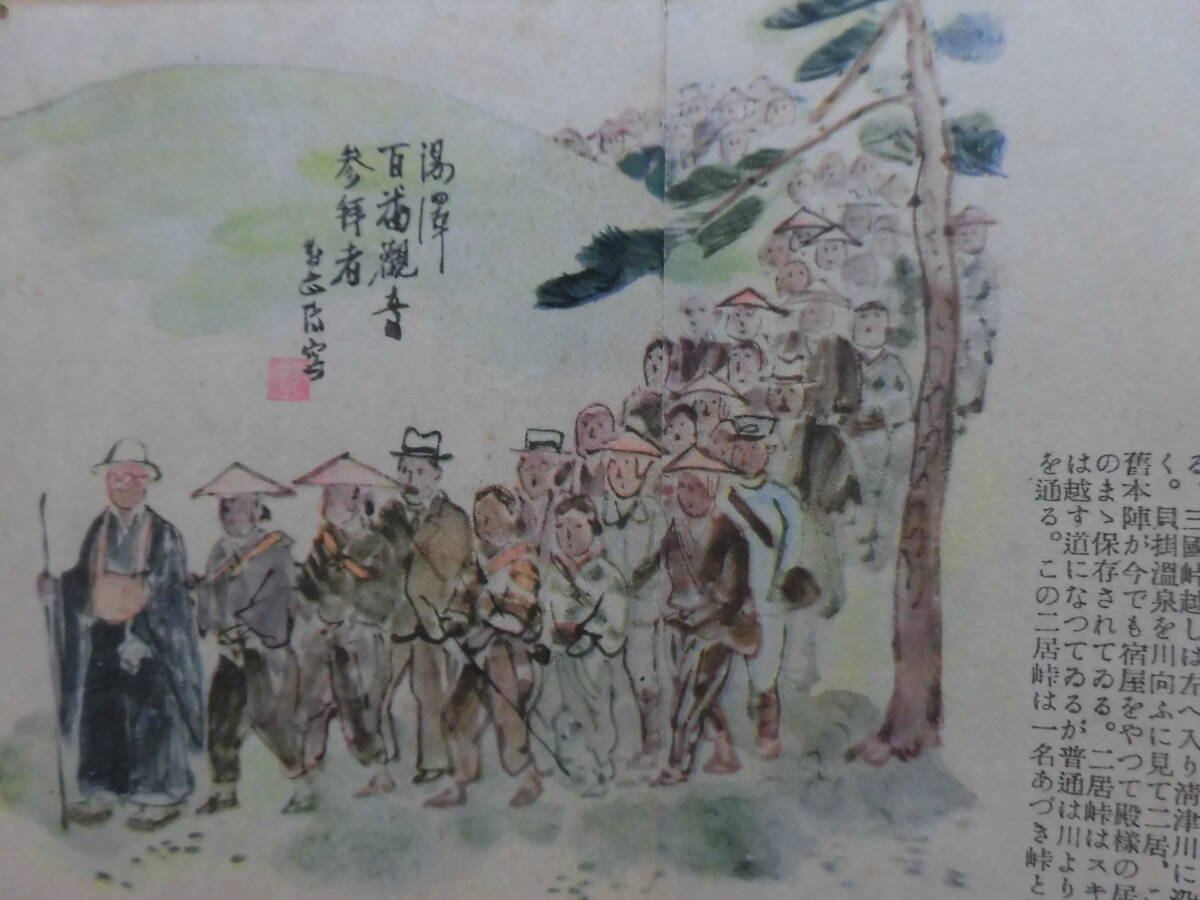 る。三國峠越しは左へ入り淸津川に
く。貝掛溫泉を川向ふに見て二居、こ
舊本陣が今でも宿屋をやつて殿樣の居
のまゝ保存されてゐる。二居峠はスキ
は越す道になつてゐるが普通は川より
を通る。この二居峠は一名あづき峠と
湯澤
百番觀音
参拜者
寫